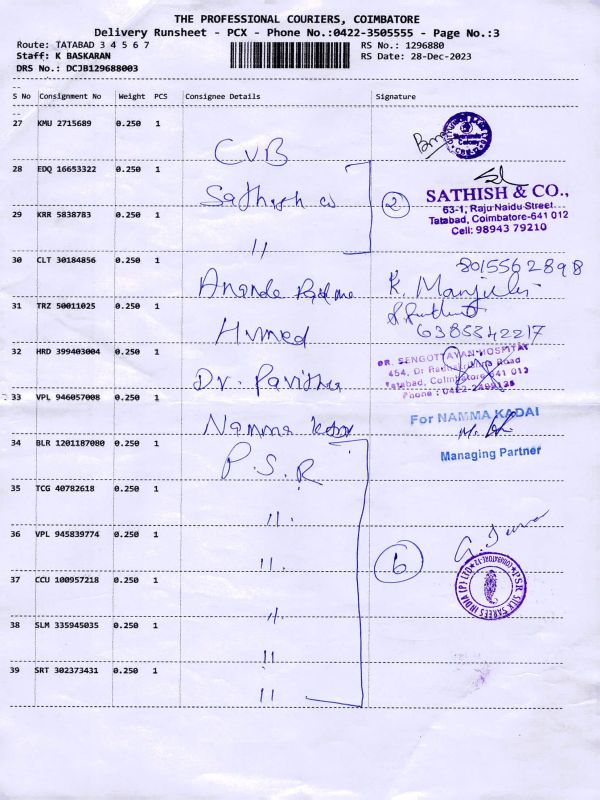 THE PROFESSIONAL COURIERS, COIMBATORE
Delivery Runsheet - PCX - Phone No.:0422-3505555 - Page No.:3
Route: TATABAD 3 4 5 6 7
RS No.: 1296880
Staff: K BASKARAN
RS Date: 28-Dec-2023
DRS No.: DCJB129688003
S No Consignment No Weight PCS Consignee Details Signature
27 KMU 2715689 0.250 1 CUB
28 EDQ 16653322 0.250 1 Sathish co
2
SATHISH & CO.,
63-1, Raju Naidu Street
Tatabad, Coimbatore-641 012
Cell: 98943 79210
29 KRR 5838783 0.250 1 "
30 CLT 30184856 0.250 1 Ananda
8015562898
K. Manjula
31 TRZ 50011025 0.250 1 Humed
6385842217
32 HRD 399403004 0.250 1 Dr. Pavithra
DR. SENGOTTAIYAN HOSPITAL
454, Dr Road
Tatabad, Coimbatore 641 012
Phone :
33 VPL 946057008 0.250 1 Namma kadai
For NAMMA KADAI
Managing Partner
34 BLR 1201187080 0.250 1 P.S.R
35 TCG 40782618 0.250 1 "
36 VPL 945839774 0.250 1 "
6
37 CCU 100957218 0.250 1 "
P.S.R. SILK SAREES INDIA (P) LTD
COIMBATORE-12
38 SLM 335945035 0.250 1 "
39 SRT 302373431 0.250 1 "